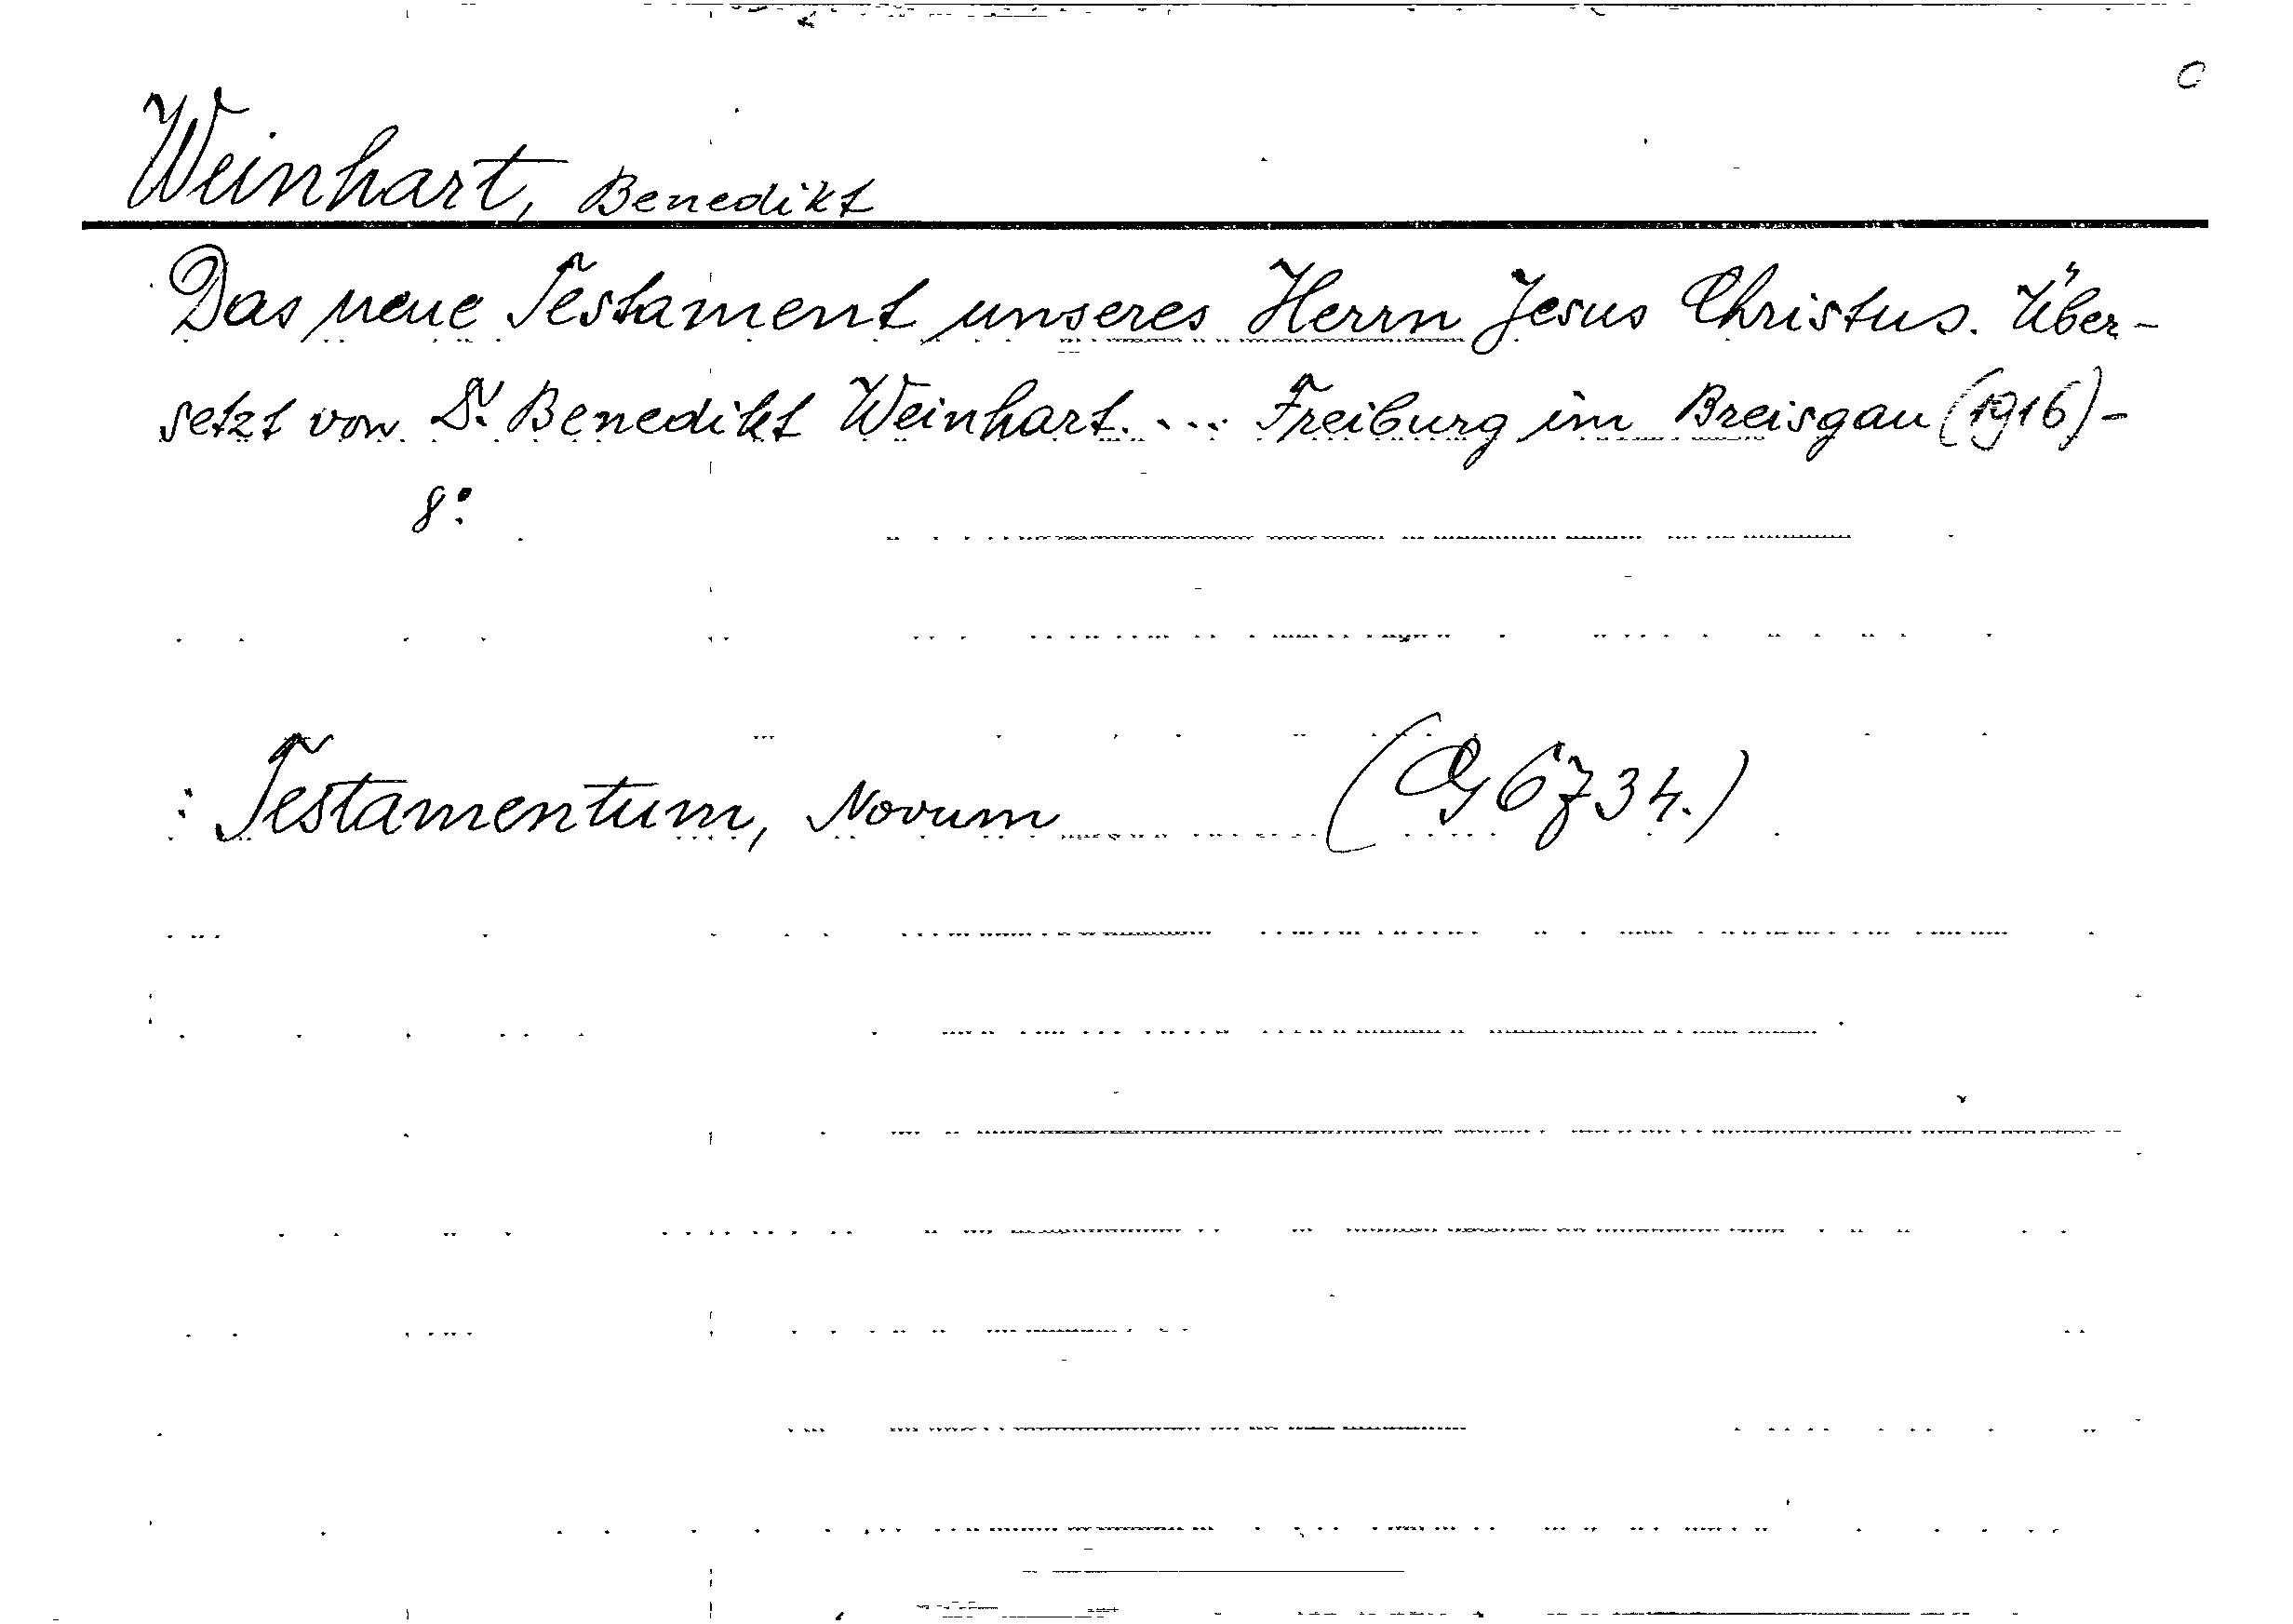 C
Weinhart, Benedikt
Das neue Testament unseres Herrn Jesus Christus. Über-
setzt von Dr. Benedikt Weinhart. ... Freiburg im Breisgau (1916)-
8°.
: Testamentum, Novum (G 6734.)